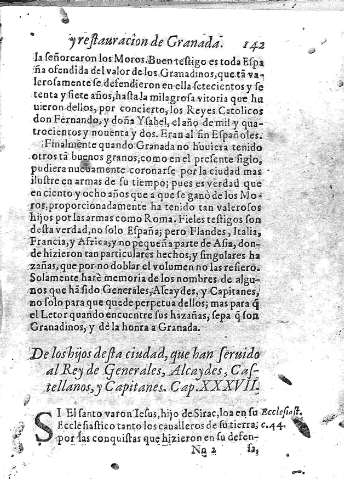 y restauracion de Granada. 142
la señorcaron los Moros. Buen testigo es toda Espa
ña ofendida del valor de los Granadinos, que tã va-
lerosamente se defendieron en ella setecientos y se
tenta y siete años, hasta la milagrosa vitoria que hu
uieron dellos, por concierto, los Reyes Catolicos
don Fernando, y doña Ysabel, el año de mil y qua-
trocientos y nouenta y dos. Eran al fin Españoles.
Finalmente quando Granada no houiera tenido
otros tã buenos granos, como en el presente siglo,
pudiera nueuamente coronarse por la ciudad mas
ilustre en armas de su tiempo; pues es verdad que
en ciento y ocho años que a que se ganò de los Mo-
ros, proporcionadamente ha tenido tan valerosos
hijos por las armas como Roma. Fieles testigos son
desta verdad, no solo España; pero Flandes, Italia,
Francia, y Africa, y no pequeña parte de Asia, don-
de hizieron tan particulares hechos, y singulares ha
zañas, que por no doblar el volumen no las refiero.
Solamente harè memoria de los nombres de algu-
nos que hã sido Generales, Alcaydes, y Capitanes,
no solo para que quede perpetua dellos; mas para q̃
el Letor quando encuentre sus hazañas, sepa q̃ son
Granadinos, y dè la honra a Granada.
De los hijos desta ciudad, que han seruido
al Rey de Generales, Alcaydes, Cas-
tellanos, y Capitanes. Cap. XXXVII.
SI El santo varon Iesus, hijo de Sirac, loa en su Ecclesiast.
Ecclesiastico tanto los caualleros de su tierra; c.44.
por las conquistas que hizieron en su defen-
Nn 2 sa,